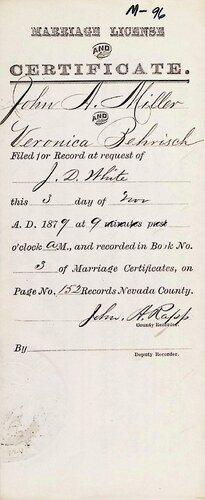 M-96
MARRIAGE LICENSE
AND
CERTIFICATE.
John A. Miller
AND
Veronica Behrisch
Filed for Record at request of
J. D. White
this 3 day of Nov
A. D. 1879 at 9 minutes past
o'clock A M., and recorded in Book No.
3 of Marriage Certificates, on
Page No. 152 Records Nevada County.
John A. Rapp
County Recorder.
By
Deputy Recorder.